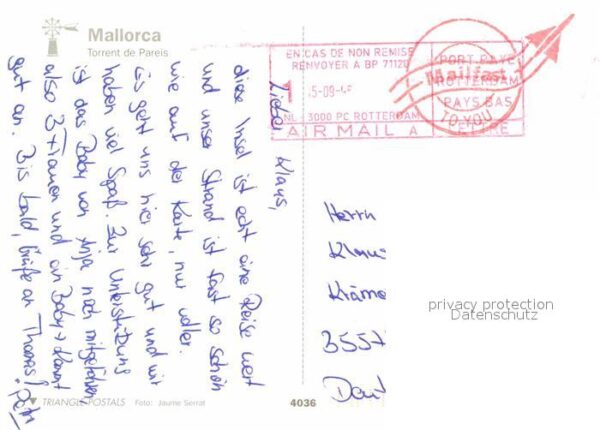 Mallorca
Torrent de Pareis
EN CAS DE NON REMISE
RENVOYER A BP 71120
NL - 3000 PC ROTTERDAM
AIR MAIL A
PORT PAYE
ROTTERDAM
PAYS BAS
LETTRE
Mailfast
TO YOU
Lieber Klaus,
diese Insel ist echt eine Reise wert
und unser Strand ist fast so schön
wie auf der Karte, nur voller.
Es geht uns hier sehr gut und wir
haben viel Spaß. Zur Unterstützung
ist das Baby von Anja noch mitgefahren,
also 3 Frauen und ein Baby
gut an. Bis bald, Grüße an Thomas!
Herrn
Klau
Kräme
3557
privacy protection
Datenschutz
TRIANGLE POSTALS Foto: Jaume Serrat
4036